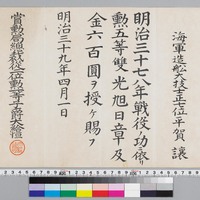 海軍造船大技士正七位平賀譲
明治三十七八年戦役ノ功ニ依リ
勲五等雙光旭日章及
金六百圓ヲ授ケ賜フ
明治三十九年四月一日
賞勲局総裁従二位勲一等子爵大給恒